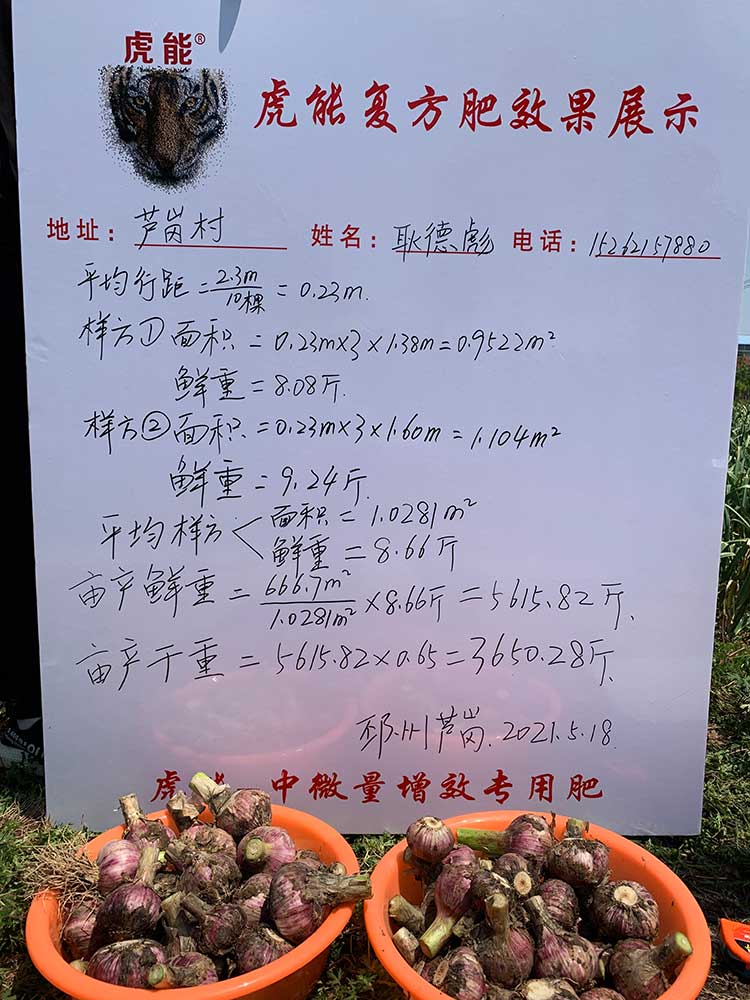 虎能®
虎能复方肥效果展示
地址：芦岗村 姓名：耿德彪 电话：15262157880
平均行距=2.3m/10棵=0.23m.
样方①面积=0.23m×3×1.38m=0.9522m²
鲜重=8.08斤.
样方②面积=0.23m×3×1.60m=1.104m²
鲜重=9.24斤.
平均样方<面积=1.0281m²
鲜重=8.66斤
亩产鲜重=666.7m²/1.0281m²×8.66斤=5615.82斤.
亩产干重=5615.82×0.65=3650.28斤.
邳州芦岗.2021.5.18.
虎 中微量增效专用肥